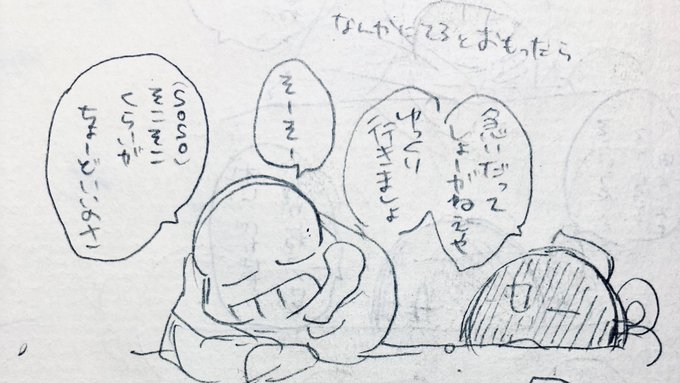 なんかにてるとおもったら
急いだって
しょーがねえや
ゆっくり
行きましょ
そーそー
(SOSO)
そこそこ
くらいが
ちょーどいいのサ